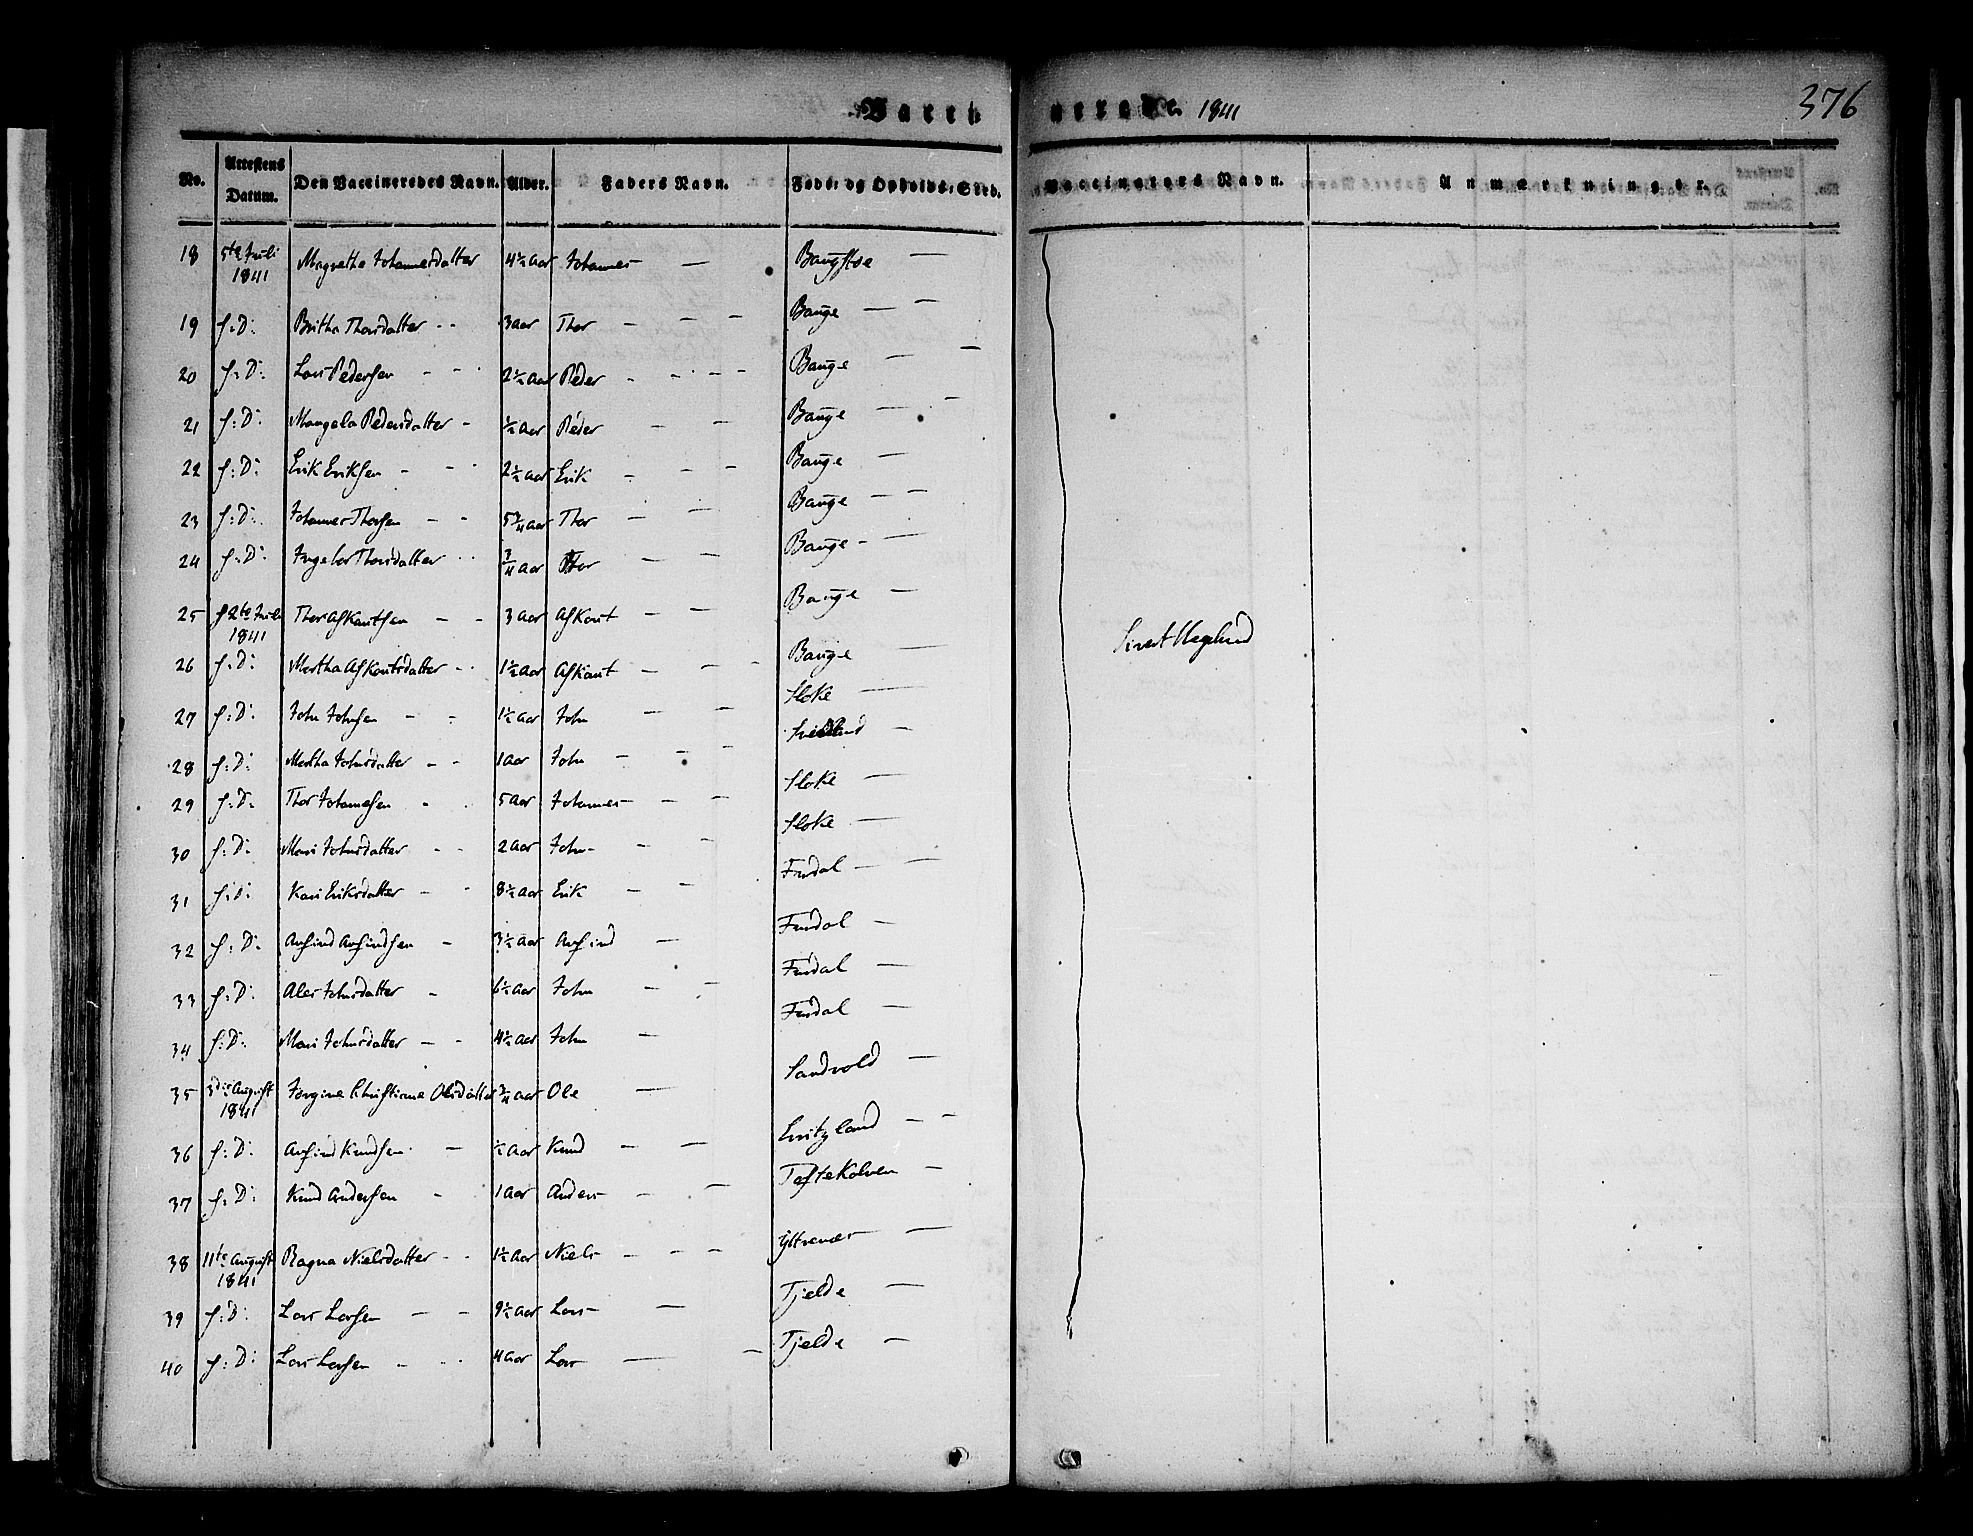 Vaccinerede. 1841
376
No. Attestens Datum. Den Vaccineredes Navn. Alder. Faders Navn. Føde- og Opholds-Sted. Vaccinateurs Navn. Anmærkninger.
18 5te Juli 1841 Magretha Johannesdatter 4½ Aar Johannes — Baugstøe —
19 s: D: Britha Thorsdatter 3 Aar Thor — Bauge —
20 s: D: Lars Pedersen 2½ Aar Peder — Bauge —
21 s: D: Mangela Pedersdatter ½ Aar Peder — Bauge —
22 s: D: Erik Eriksen 2½ Aar Erik — Bauge —
23 s: D: Johannes Thorsen 5¾ Aar Thor — Bauge —
24 s: D: Ingebor Thorsdatter ¾ Aar Thor — Bauge —
25 Juli 1841 Thor Afkautsen 3 Aar Afkaut — Bauge —
26 s: D: Martha Afkautsdatter 1½ Aar Afkaut — Bauge —
27 s: D: John Johnsen 1½ Aar John — Floke —
28 s: D: Martha Johnsdatter 1 Aar John —
29 s: D: Thor Johannesen 5 Aar Johannes — Floke —
30 s: D: Mari Johnsdatter 2 Aar John — Floke —
31 s: D: Kari Eriksdatter 8½ Aar Erik — Furdal —
32 s: D: Anfind Anfindsen 3½ Aar Anfind — Furdal —
33 s: D: Ales Johnsdatter 6½ Aar John — Furdal —
34 s: D: Mari Johnsdatter 4½ Aar John — Furdal —
35 3die August 1841 Jorgine Christianne Olesdatter ¾ Aar Ole — Sandvold —
36 s: D: Anfind Knudsen ½ Aar Knud — Evitzland —
37 s: D: Knud Andersen 1 Aar Anders — Toftekalven —
38 11te August 1841 Ragna Nielsdatter 1½ Aar Niels — Yttrenæs —
39 s: D: Lars Larsen 9½ Aar Lars — Tjelde —
40 s: D: Lars Larsen 4 Aar Lars — Tjelde —
Sivert Heglund